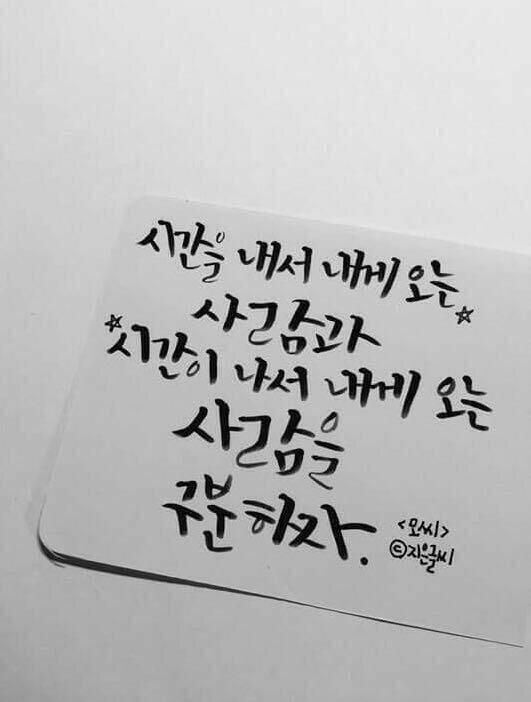 시간을 내서 내게 오는
사람과
시간이 나서 내게 오는
사람을
구분하자.
<모씨>
©지은글씨